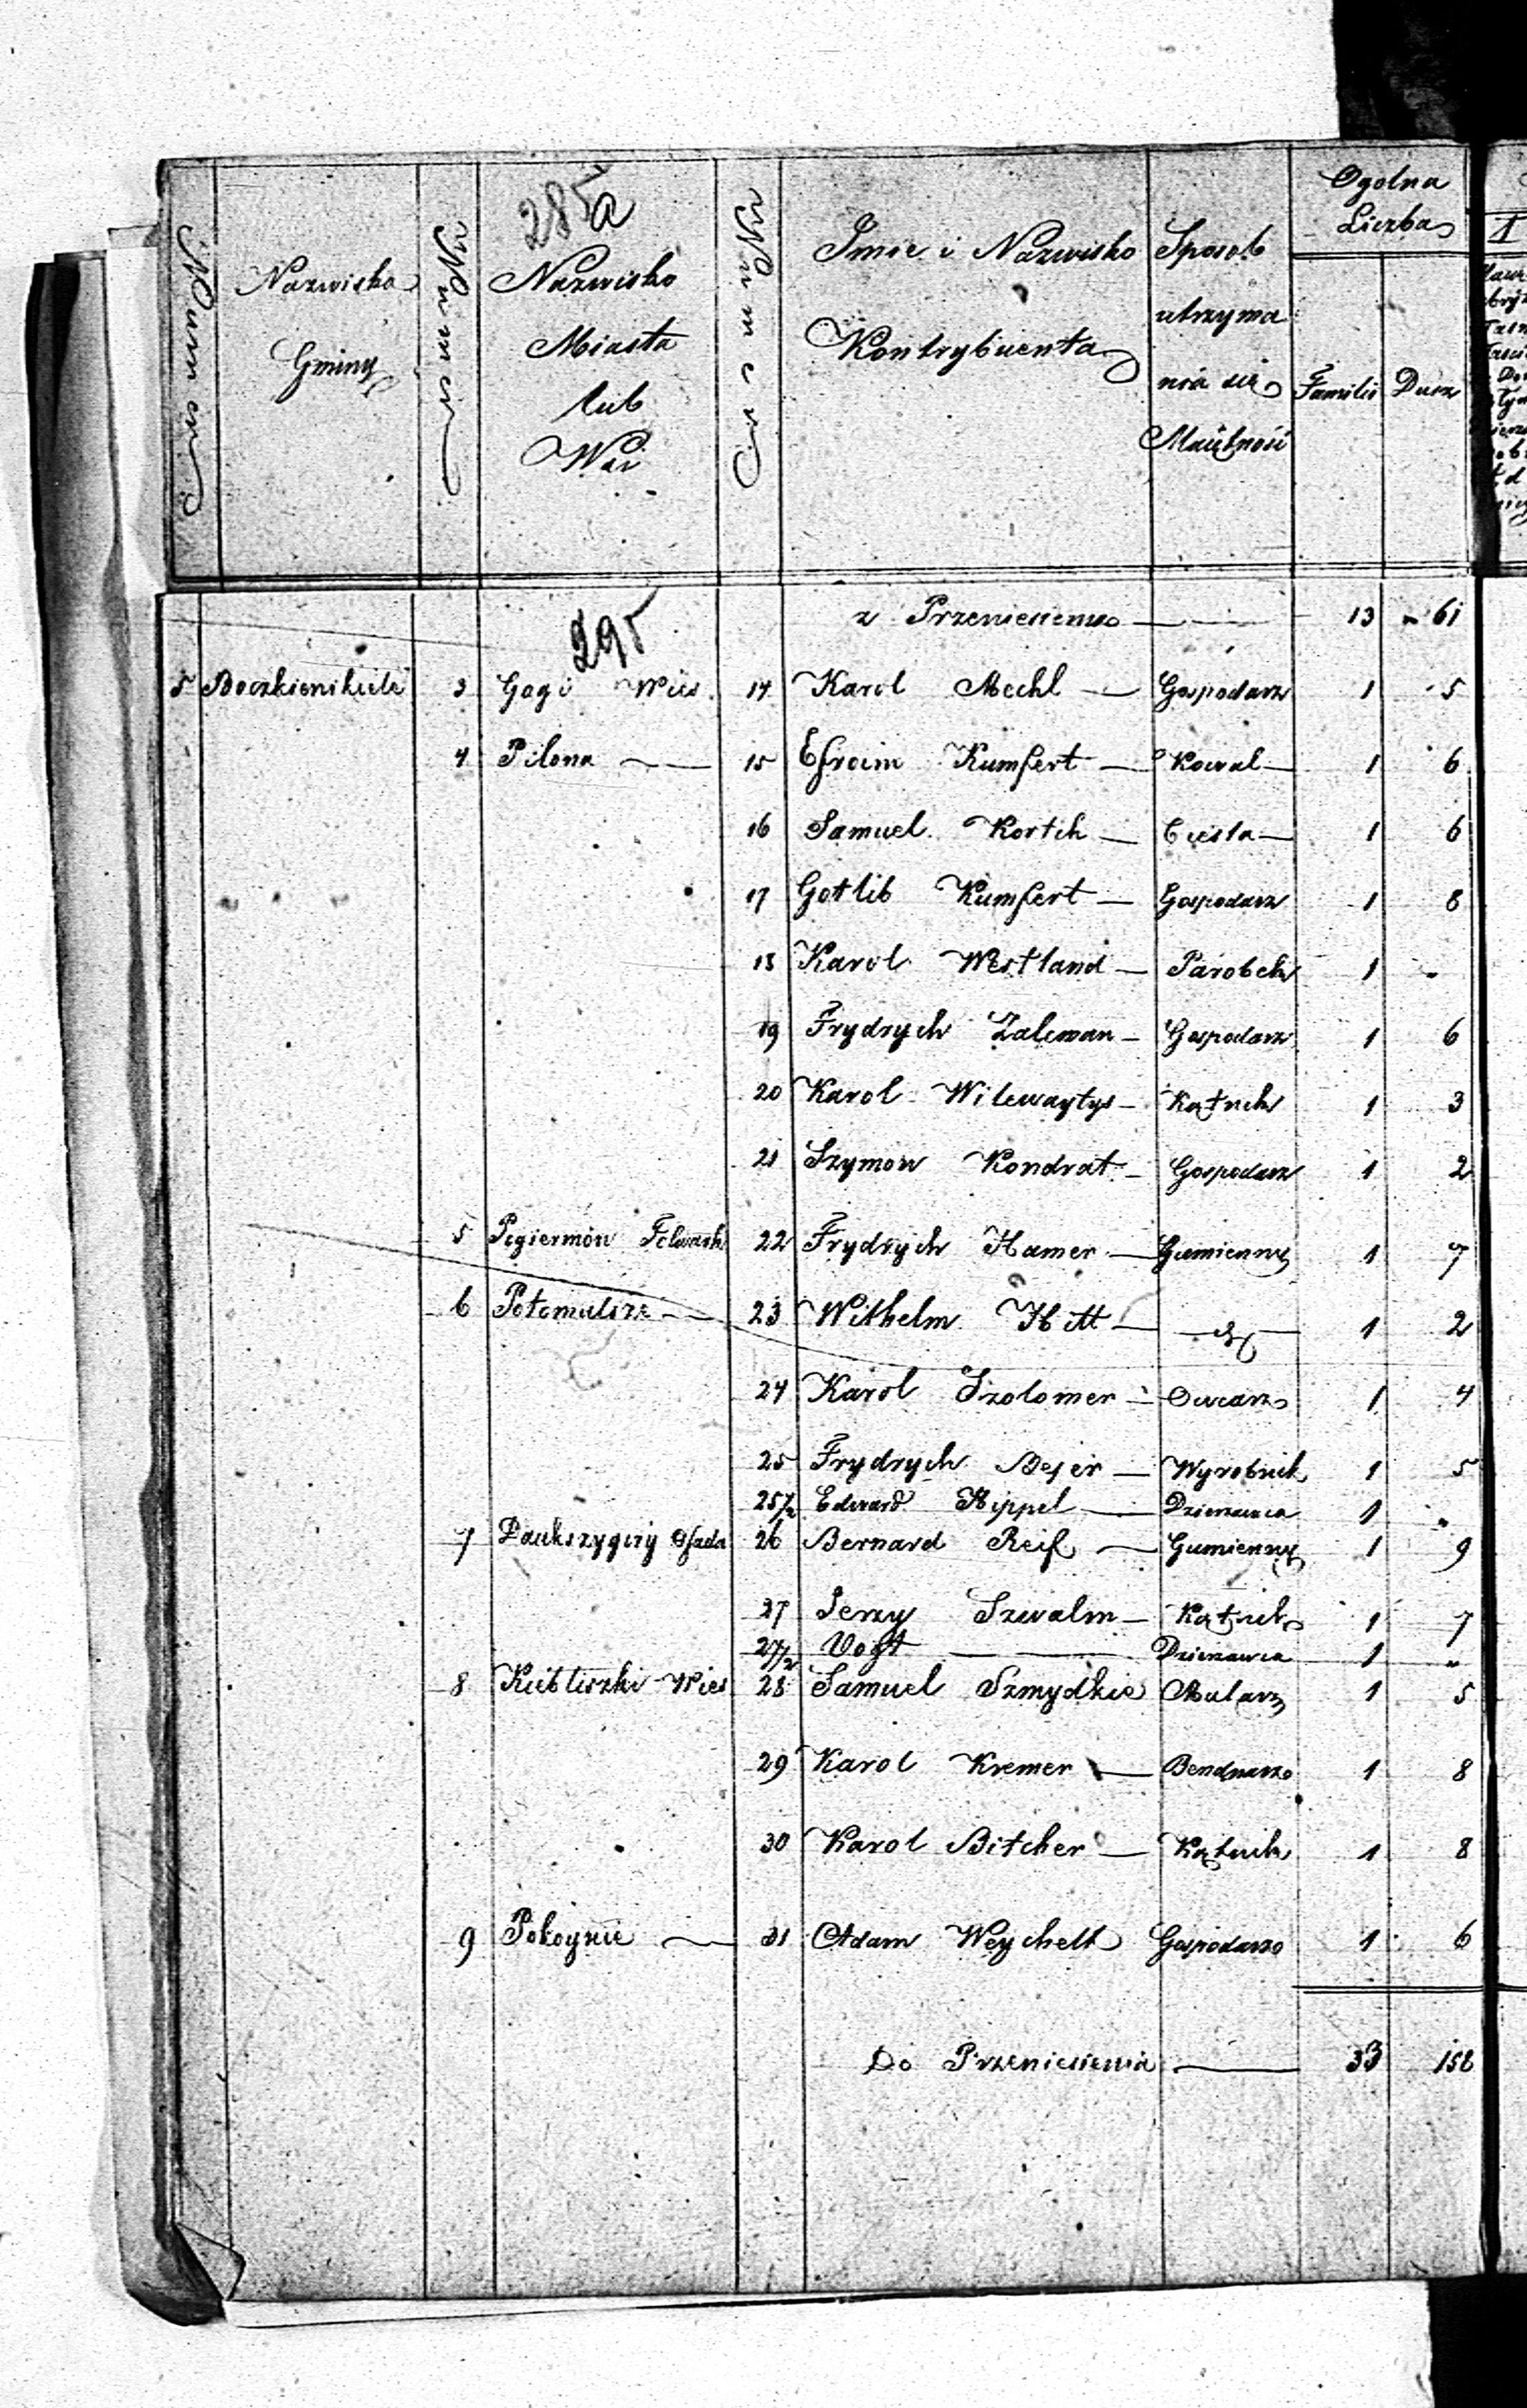 285a
Numer
Nazwisko Gminy
Numer
Nazwisko Miasta lub Wsi
Numer
Imie i Nazwisko Kontrybuenta
Sposob utrzyma nia się
Ogolna Liczba
Familii
Dusz
1
295
z Przeniesienia — 13 " 61
5 Boczkienikiele 3 Gogi Wies 14 Karol Mechl — Gospodarz 1 5
4 Pilona — 15 Efroim Kumfert — Kowal — 1 6
16 Samuel Kortch — Ciesla — 1 6
17 Gotlib Kumfert — Gospodarz 1 8
18 Karol Westland — Parobek 1 "
19 Frydrych Zaleman — Gospodarz 1 6
20 Karol Wilewaytys — Kątnik 1 3
21 Szymon Kondrat — Gospodarz 1 2
5 Pogiermon Folwark 22 Frydrych Hamer — Gumienny 1 7
6 Potomulsze — 23 Wilhelm Hitt — 1 2
24 Karol Szolomer — Owcarz 1 4
25 Frydrych Bejer — Wyrobnik 1 5
25/2 Edward Hippel — Dzierzawca 1 "
7 Paukszyginy Osada 26 Bernard Reif — Gumienny 1 9
27 Jerzy Szwalm — Kątnik 1 7
27/2 Vogt — Dzierzawca 1 "
8 Kubliszki Wies 28 Samuel Szmydkie Mularz 1 5
29 Karol Kremer — Bendnarz 1 8
30 Karol Bitcher — Kątnik 1 8
9 Pokoynie — 31 Adam Weychelt Gospodarz 1 6
Do Przeniesienia — 33 158